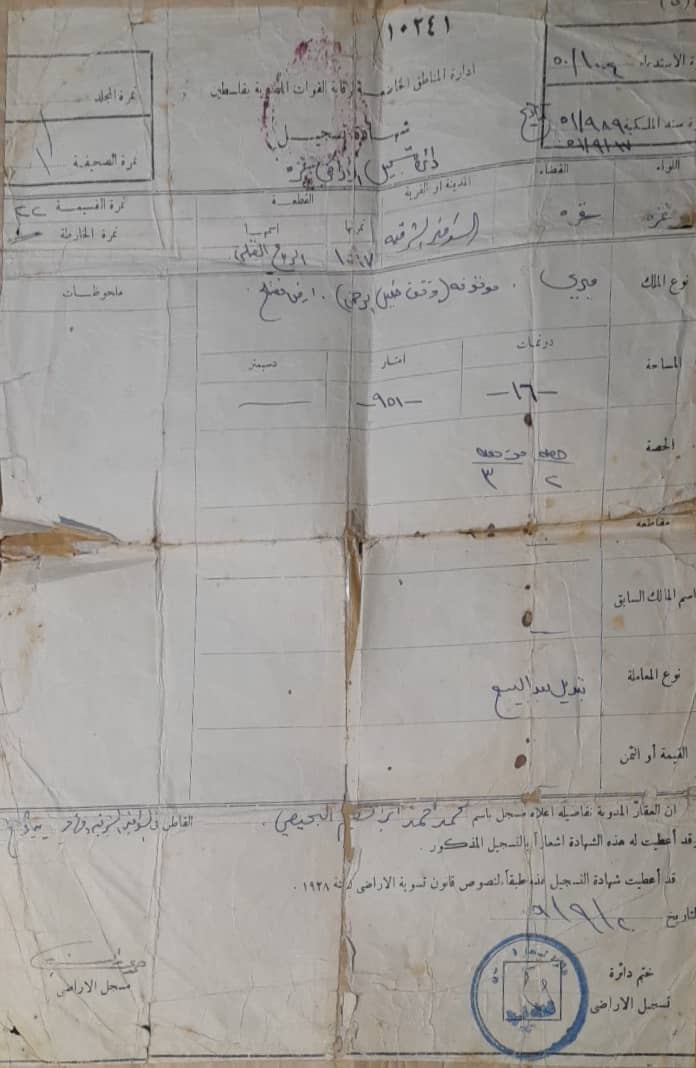 ١٠٢٤١
ادارة المناطق الخاضعة لرقابة القوات المصرية بفلسطين
شهادة تسجيل
دائرة تسجيل الاراضي غزة
سند الملكية ٥١/٩٨٩
نمرة المجلد
نمرة الصحيفة
اللواء
القضاء
المدينة او القرية
القطعة
نمرتها
اسمها
نمرة القسيمة ٢٢
نمرة الخارطة
غزه
غزه
السوافير الشرقيه
نوع الملك
ميري . موقوفه (وقف خليل الرحمن) .
ملحوظات
المساحة
دونمات
امتار
دسيمتر
–١٦–
–٩٥١–
الحصة
حصه من حصه
٢ ٣
مقاطعة
اسم المالك السابق
نوع المعاملة
تبديل بعد البيع
القيمة أو الثمن
ان العقار المدونة تفاصيله اعلاه مسجل باسم محمد احمد البحيصي . القاطن في السوافير الشرقيه
وقد أعطيت له هذه الشهادة اشعاراً بالتسجيل المذكور .
قد أعطيت شهادة التسجيل هذه طبقاً لنصوص قانون تسوية الاراضى لسنة ١٩٢٨ .
التاريخ
ختم دائرة
تسجيل الاراضى
مسجل الاراضى